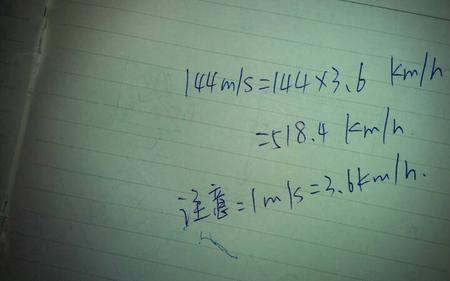 144m/s=144×3.6 km/h
=518.4 km/h
注意:1m/s=3.6km/h.